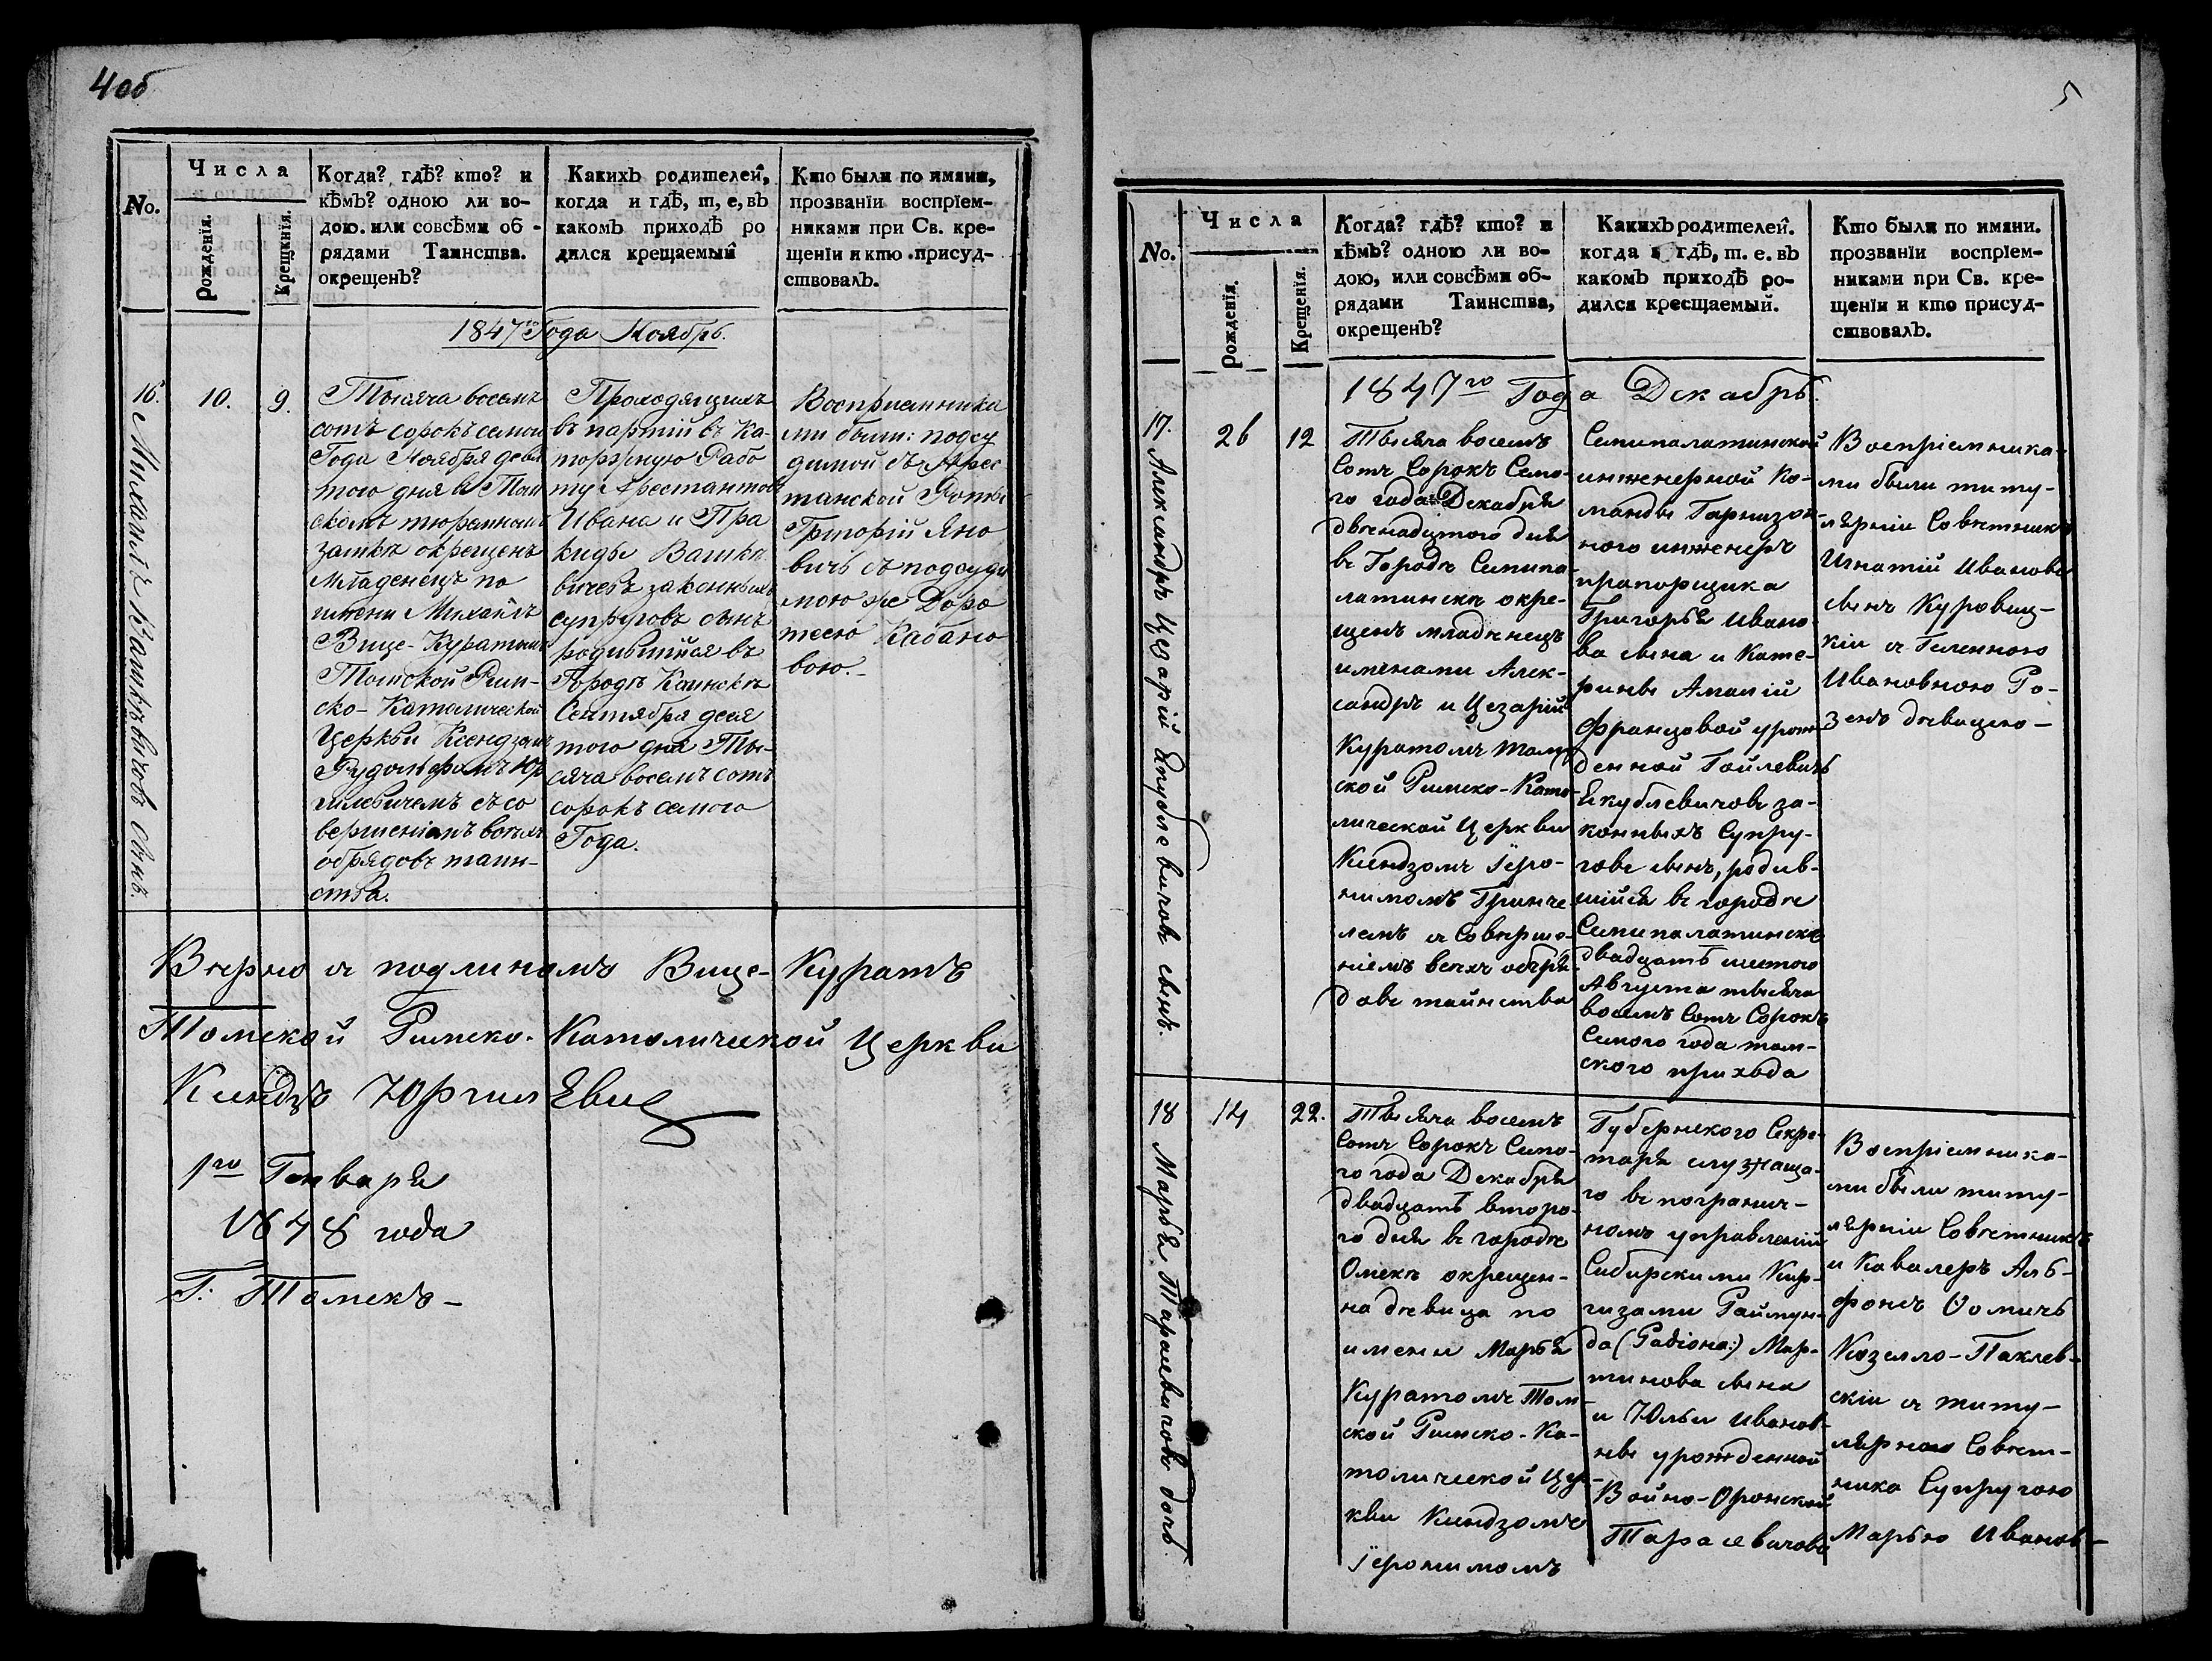 4 об
No.
Числа
Рожденія.
Крещкнія.
Когда? гдѣ? кто? и
кѣмъ? одною ли во-
дою. или совсѣми об -
рядами Таинства.
окрещенъ?
Какихъ родителей,
когда и гдѣ, т, е, въ
какомъ приходѣ ро
дился крещаемый
Кто были по имяни,
прозванїи воспрїем-
никами при Св. кре-
щенїи и кто .присуд-
ствовалъ.
1847го Года Ноябрь.
16.
Михаилъ Вашкѣвичовъ сынъ.
10.
9.
Тысяча восемъ
сотъ сорокъ семои
Года Ноября девя
того дня в Том
скомъ тюремномъ
замкѣ окрещенъ
Младенецъ по
имени Михаилъ
Вице-Куратомъ
Томской Рим-
ско-Католической
Церкви Ксендзомъ
Рудольфомъ Юр
гилевичемъ съ со
вершеніемъ всѣхъ
обрядовъ таин-
ства.
Проходящихъ
въ партіи въ Ка-
торжную Рабо
ту Арестантов
Ивана и Пра
киды Вашкѣ
вичевъ законныхъ
супруговъ сынъ
родившійся въ
Городѣ Каинскѣ
Сентября деся
того дня Ты-
сяча восемъ сотъ
сорокъ семого
Года.
Восприемника
ми были: подсу
димой съ Арес
танской Роты
Григорій Яно
вичъ съ подсуди
мою же Доро
теею Кабано
вою.-
Вѣрно съ подлинномъ Вице-Куратъ
Томской Римско-Католической Церкви
Ксендзъ Юргилевич
1го Генваря
1848 года
Г. Томскъ-
5
No.
Числа
Рожденїя.
Крещенїя.
Когда? гдѣ? кто? и
кѣмъ? одною ли во-
дою, или совсѣми об-
рядами Таинства,
окрещенъ?
Какихъ родителей.
когда и гдѣ, т. е. въ
какомъ приходѣ ро-
дился кресщаемый.
Кто были по имяни.
прозванїи воспрїем-
никами при Св. кре-
щенїи и кто присуд-
ствовалъ.
1847го Года Декабрь.
17.
Александръ Цезарій Якублевичовъ сынъ.
26
12
Тысяча восемъ
Сотъ Сорокъ Семо-
го года Декабря
двенадцатого дня
въ Городѣ Семипа-
латинскѣ окре-
щенъ младѣнецъ
именами Алек-
сандръ и Цезарій
Куратомъ Томс
кой Римско-Като-
лической Церкви
Ксендзомъ Іеро-
нимомъ Гринце-
лемъ съ Соверше-
ніемъ всѣхъ обря-
довъ таинства
Семипалатинской
инженерной Ко-
манды Гарнизон-
ного инженеръ
прапорщика
Григорья Ивано-
ва сына и Кате-
рины Амалій
Францовой урож-
денной Гойлевичъ
Якублевичовъ за-
конныхъ Супру-
говъ сынъ, родив-
шійся въ городѣ
Семипалатинскѣ
двадцать шестого
Августа тысяча
восемъ Сотъ Сорокъ
Семого года том-
ского прихода
Воспріемника-
ми были титу-
лярніи Совѣтникъ
Игнатій Ивановъ
сынъ Куровиц-
кіи съ Геленною
Ивановною Ро-
зенъ дѣвицею-
18
Марья Тарасевичовъ дочь.
14
22.
Тысяча восемъ
Сотъ Сорокъ Семо-
го года Декабря
двадцать второ-
го дня въ городѣ
Омскѣ окрещен-
на дѣвица по
имени Марья
Куратомъ Том-
ской Римско-Ка-
толической Цер-
кви Ксендзомъ
Іеронимомъ
Губернского Секре-
таря служаща-
го въ погранич-
номъ управленіи
Сибирскими Кир-
гизами Раймун-
да (Радіона:) Мар-
тинова сына
и Юльи Иванов-
ны урожденной
Войно-Оронской
Тарасевичовъ
Воспріемника-
ми были титу-
лярніи Совѣтникъ
и Кавалеръ Аль-
фонсъ Ѳомичъ
Козелло-Поклев-
скіи съ титу-
лярного Совѣт-
ника Супругою
Марью Иванов-